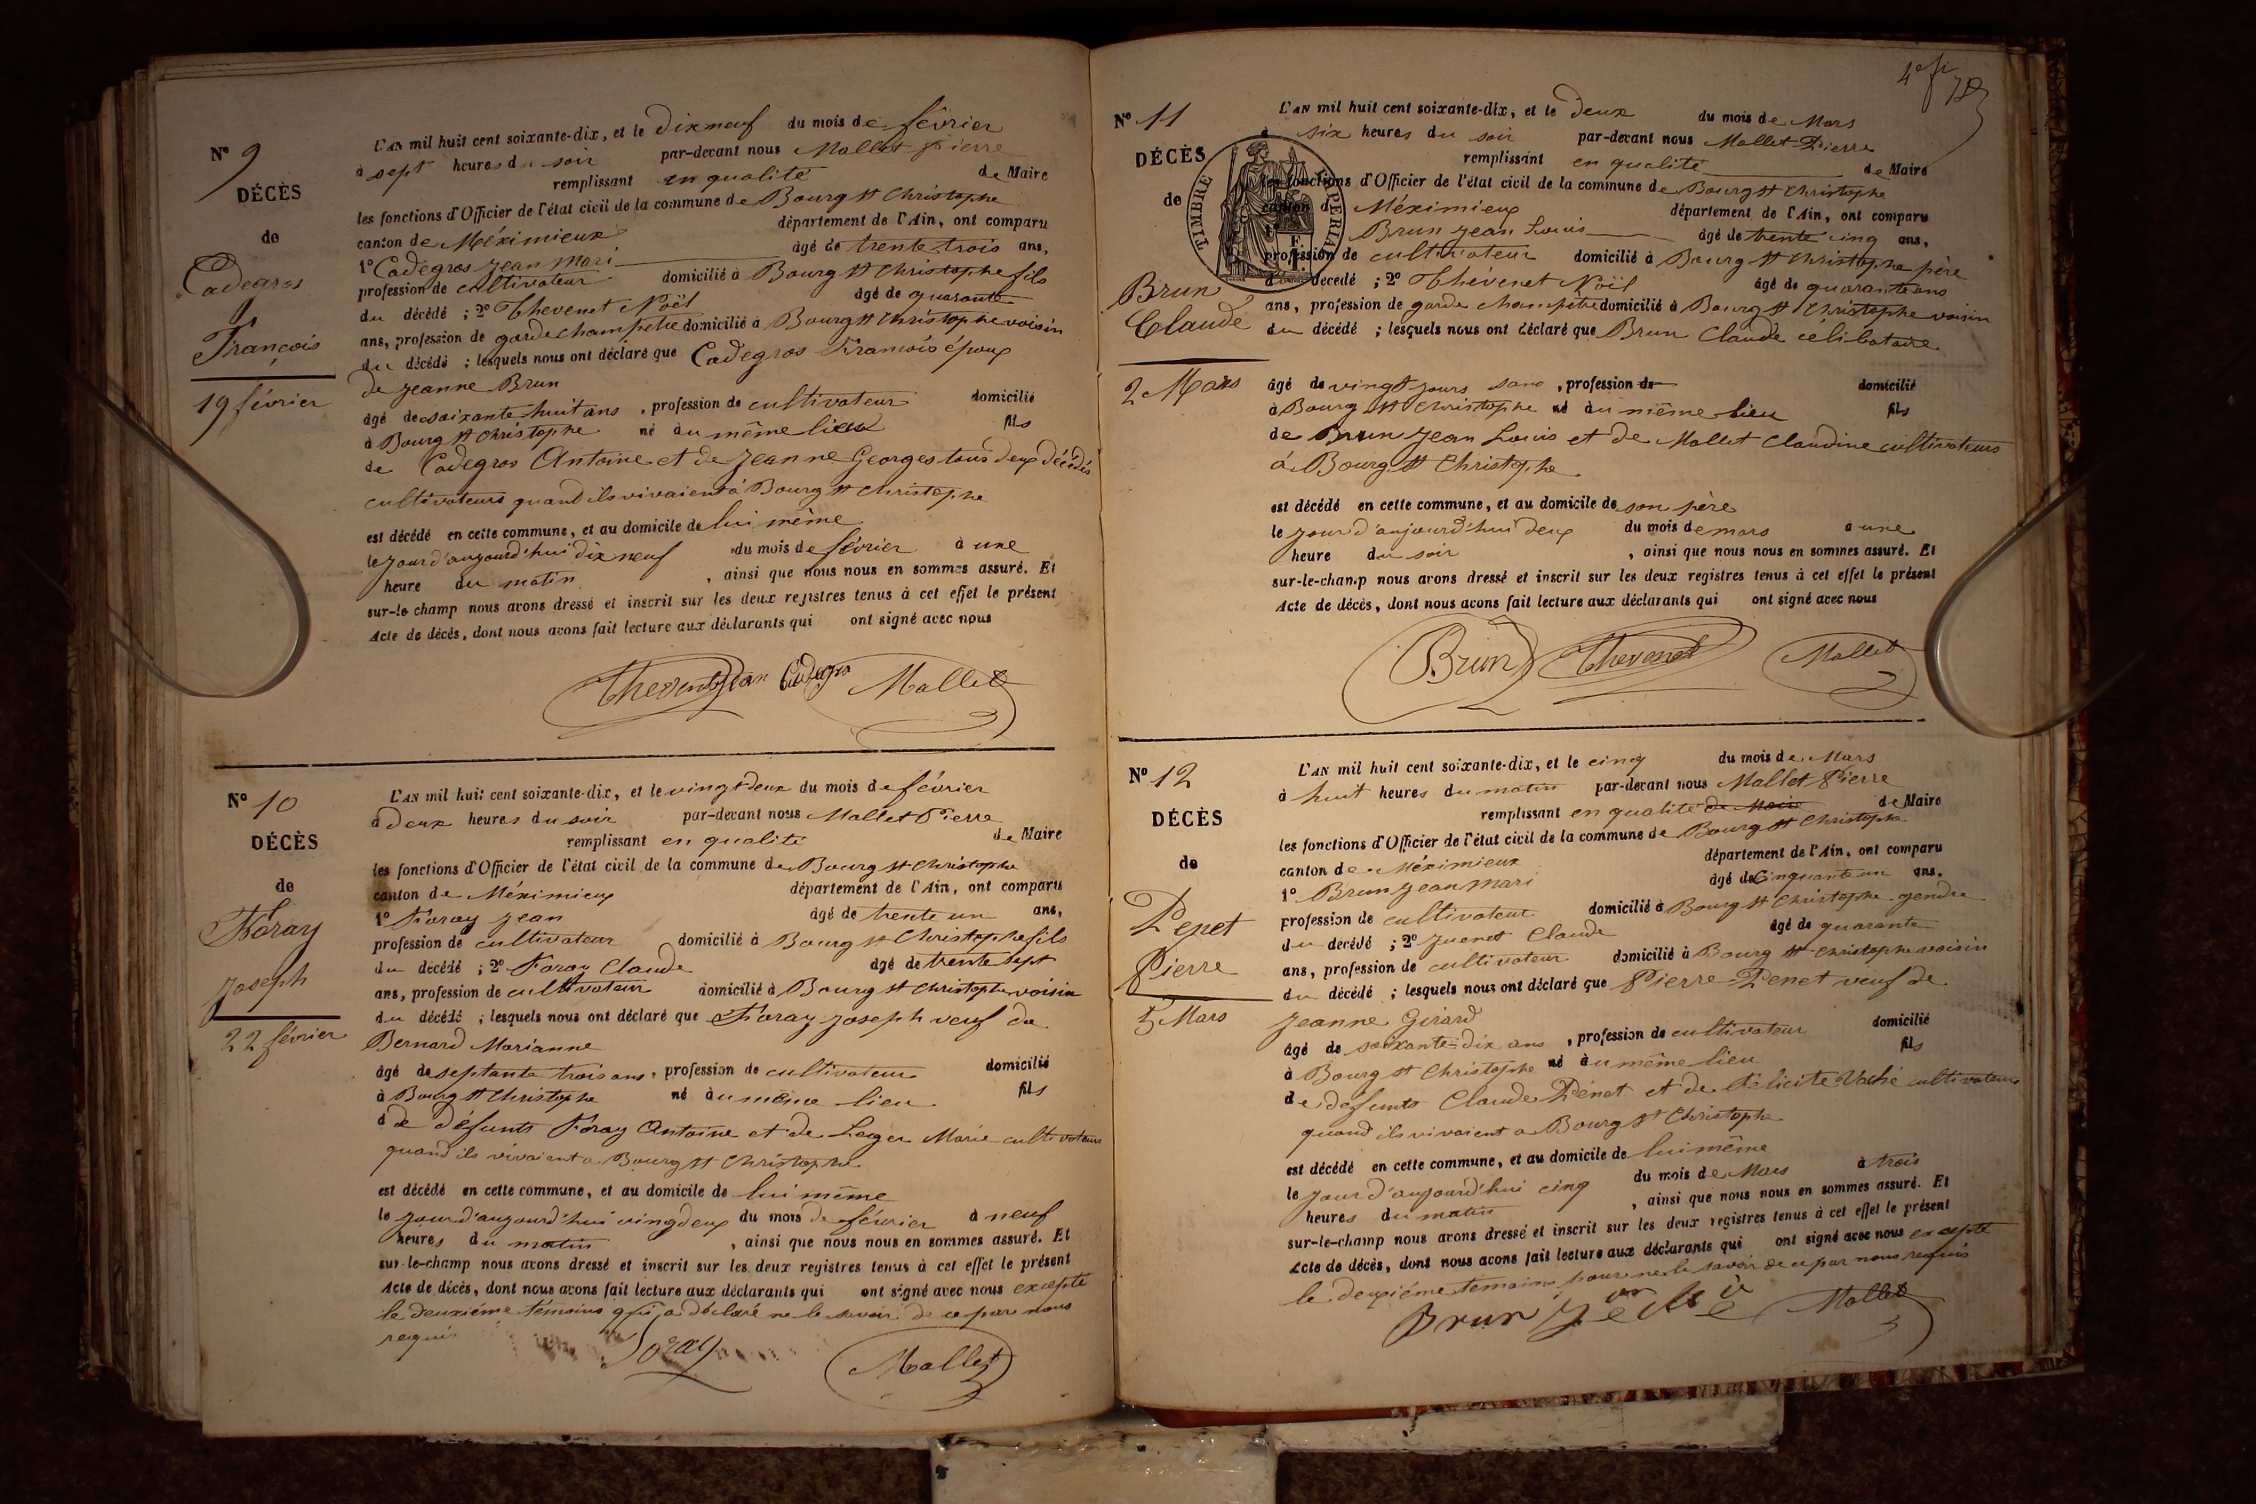 Nº 9
DÉCÈS
de
Cadegros
François
19 février
L'AN mil huit cent soixante-dix, et le Dix neuf du mois de février
à sept heures du soir par-devant nous Mallet Pierre
remplissant en qualité de Maire
les fonctions d'Officier de l'état civil de la commune de Bourg St Christophe
canton de Méximieux département de l'Ain, ont comparu
1º Cadegros Jean Mari âgé de trente trois ans,
profession de cultivateur domicilié à Bourg St Christophe fils
du décédé ; 2º Thevenet Noël âgé de quarante
ans, profession de garde champêtre domicilié à Bourg St Christophe voisin
du décédé ; lesquels nous ont déclaré que Cadegros Francois époux
de Jeanne Brun
âgé de soixante huit ans , profession de cultivateur domicilié
à Bourg St Christophe né au même lieu fils
de Cadegros Antoine et de Jeanne Georges tous deux décédés
cultivateurs quand ils vivaient à Bourg St Christophe
est décédé en cette commune, et au domicile de lui même
le jour d'aujourd'hui dix neuf du mois de février à une
heure du matin , ainsi que nous nous en sommes assuré. Et
sur-le champ nous avons dressé et inscrit sur les deux registres tenus à cet effet le présent
Acte de décès, dont nous avons fait lecture aux déclarants qui ont signé avec nous
Thevenet Jean Cadegro Mallet
Nº 10
DÉCÈS
de
Foray
Joseph
22 février
L'AN mil huit cent soixante-dix, et le vingt deux du mois de février
à deux heures du soir par-devant nous Mallet Pierre
remplissant en qualité de Maire
les fonctions d'Officier de l'état civil de la commune de Bourg St Christophe
canton de Méximieux département de l'Ain, ont comparu
1º Foray Jean âgé de trente un ans,
profession de cultivateur domicilié à Bourg St Christophe fils
du décédé ; 2º Foray Claude âgé de trente sept
ans, profession de cultivateur domicilié à Bourg St Christophe voisin
du décédé ; lesquels nous ont déclaré que Foray Joseph veuf de
Bernard Marianne
âgé de septante trois ans , profession de cultivateur domicilié
à Bourg St Christophe né au même lieu fils
de défunts Foray Antoine et de Leger Marie cultivateurs
quand ils vivaient a Bourg St Christophe
est décédé en cette commune, et au domicile de lui même
le jour d'aujourd'hui vingdeux du mois de février à neuf
heures du matin , ainsi que nous nous en sommes assuré. Et
sur-le-champ nous avons dressé et inscrit sur les deux registres tenus à cet effet le présent
Acte de décès, dont nous avons fait lecture aux déclarants qui ont signé avec nous excepté
le deuxième témoins qui a déclaré ne le savoir de ce par nous
requis
Foray Mallet
4e f
Nº 11
DÉCÈS
de
Brun
Claude
2 Mars
TIMBRE IMPERIAL
L'AN mil huit cent soixante-dix, et le Deux du mois de Mars
à six heures du soir par-devant nous Mallet Pierre
remplissant en qualité de Maire
les fonctions d'Officier de l'état civil de la commune de Bourg St Christophe
canton de Méximieux département de l'Ain, ont comparu
Brun Jean Louis âgé de trente cinq ans,
profession de cultivateur domicilié à Bourg St Christophe père
du decedé ; 2º Thévenet Noël âgé de quarante ans
ans, profession de garde champêtre domicilié à Bourg St Christophe voisin
du décédé ; lesquels nous ont déclaré que Brun Claude célibataire
âgé de vingt jours sans , profession de domicilié
à Bourg St Christophe né au même lieu fils
de Brun Jean Louis et de Mallet Claudine cultivateurs
à Bourg St Christophe
est décédé en cette commune, et au domicile de son père
le jour d'aujourd'hui deux du mois de mars a une
heure du soir , ainsi que nous nous en sommes assuré. Et
sur-le-champ nous avons dressé et inscrit sur les deux registres tenus à cet effet le présent
Acte de décès, dont nous avons fait lecture aux déclarants qui ont signé avec nous
Brun Thevenet Mallet
Nº 12
DÉCÈS
de
Penet
Pierre
5 Mars
L'AN mil huit cent soixante-dix, et le cinq du mois de Mars
à huit heures du matin par-devant nous Mallet Pierre
remplissant en qualité de Maire de Maire
les fonctions d'Officier de l'état civil de la commune de Bourg St Christophe
canton de Méximieux département de l'Ain, ont comparu
1º Brun Jean Mari âgé de Cinquante un ans,
profession de cultivateur domicilié à Bourg St Christophe gendre
du decédé ; 2º Juenet Claude âgé de quarante
ans, profession de cultivateur domicilié à Bourg St Christophe voisin
du décédé ; lesquels nous ont déclaré que Pierre Penet veuf de
Jeanne Girard
âgé de soixante-dix ans , profession de cultivateur domicilié
à Bourg St Christophe né au même lieu fils
de défunts Claude Pénet et de Félicité cultivateurs
quand ils vivaient a Bourg St Christophe
est décédé en cette commune, et au domicile de lui même
le jour d'aujourd'hui cinq du mois de Mars à trois
heures du matin , ainsi que nous nous en sommes assuré. Et
sur-le-champ nous avons dressé et inscrit sur les deux registres tenus à cet effet le présent
Acte de décès, dont nous avons fait lecture aux déclarants qui ont signé avec nous excepté
le deuxième temoins pour ne le savoir de ce par nous requis
Brun Mallet